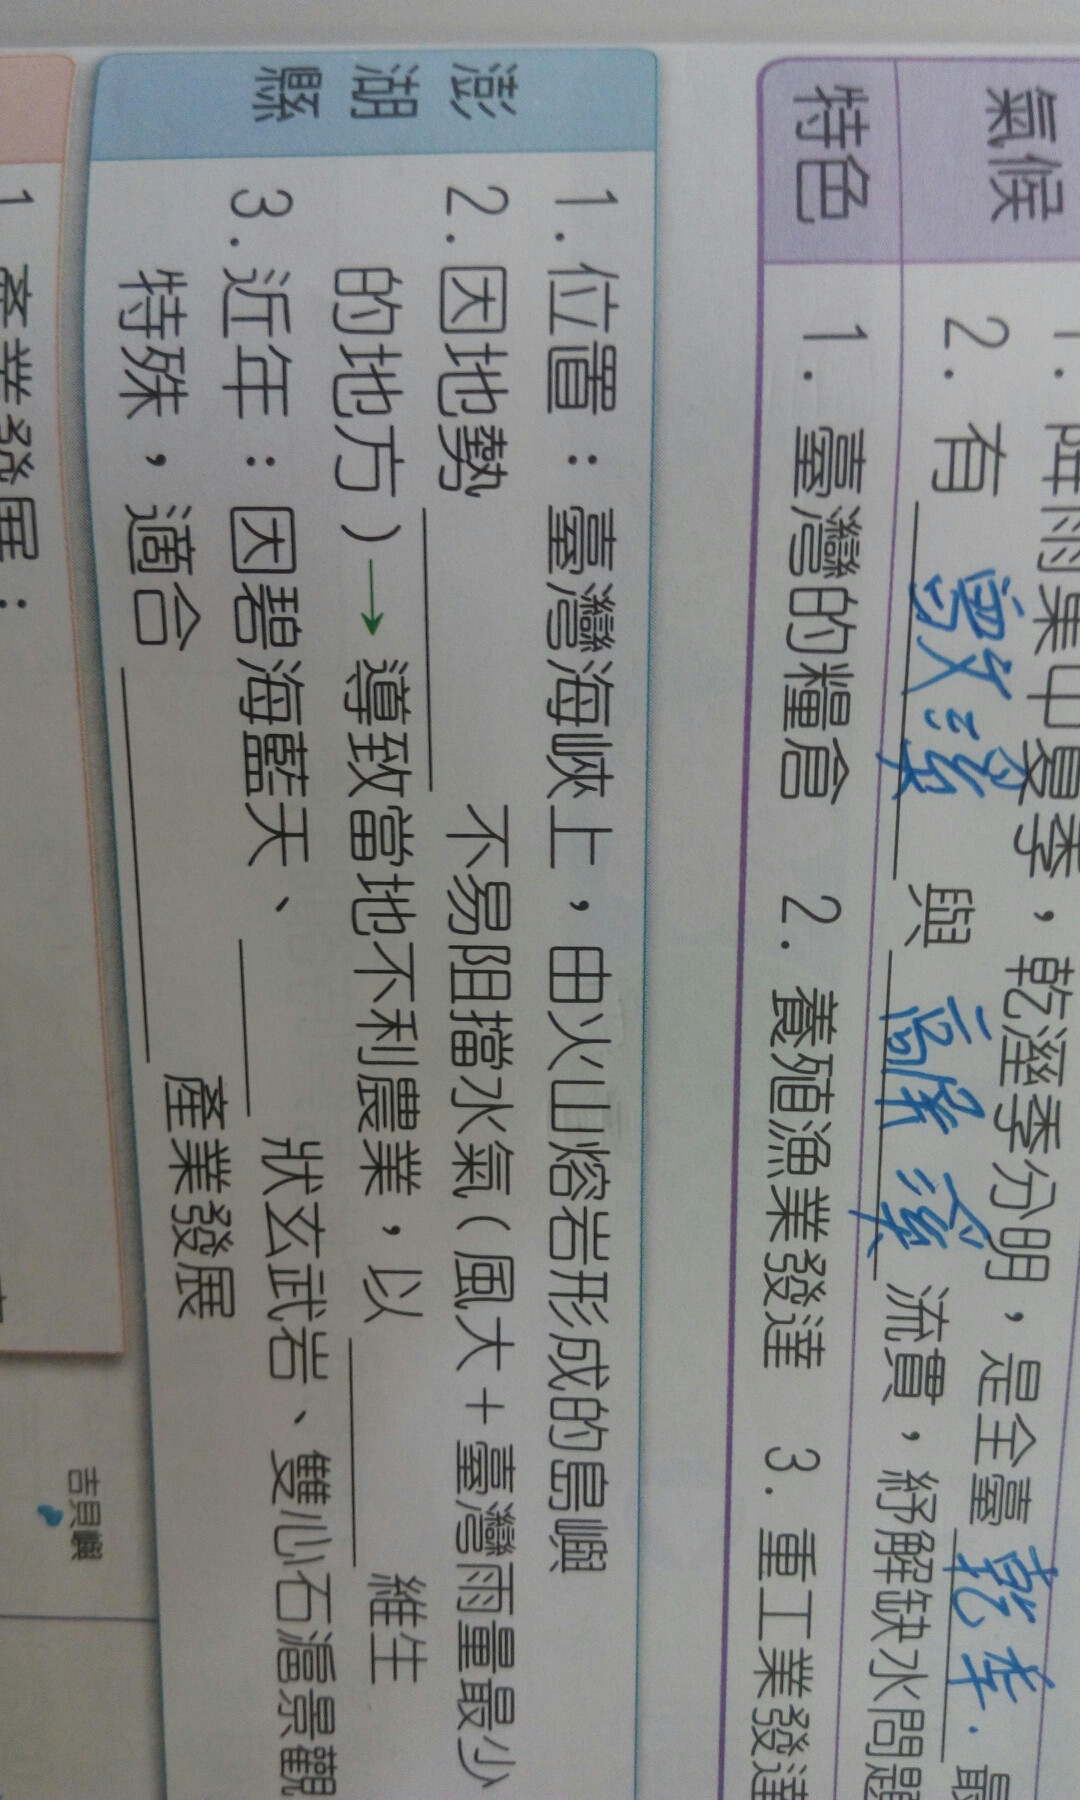 氣候
1.降雨集中夏季,乾溼季分明,是全臺 乾季.最
2.有 曾文溪 與 高屏溪 流貫,紓解缺水問題
特色
1.臺灣的糧倉 2.養殖漁業發達 3.重工業發達
澎湖縣
1.位置:臺灣海峽上,由火山熔岩形成的島嶼
2.因地勢 不易阻擋水氣(風大+臺灣雨量最少
的地方)→導致當地不利農業,以 維生
3.近年:因碧海藍天、 狀玄武岩、雙心石滬景觀
特殊,適合 產業發展
1.產業發展:
吉貝嶼